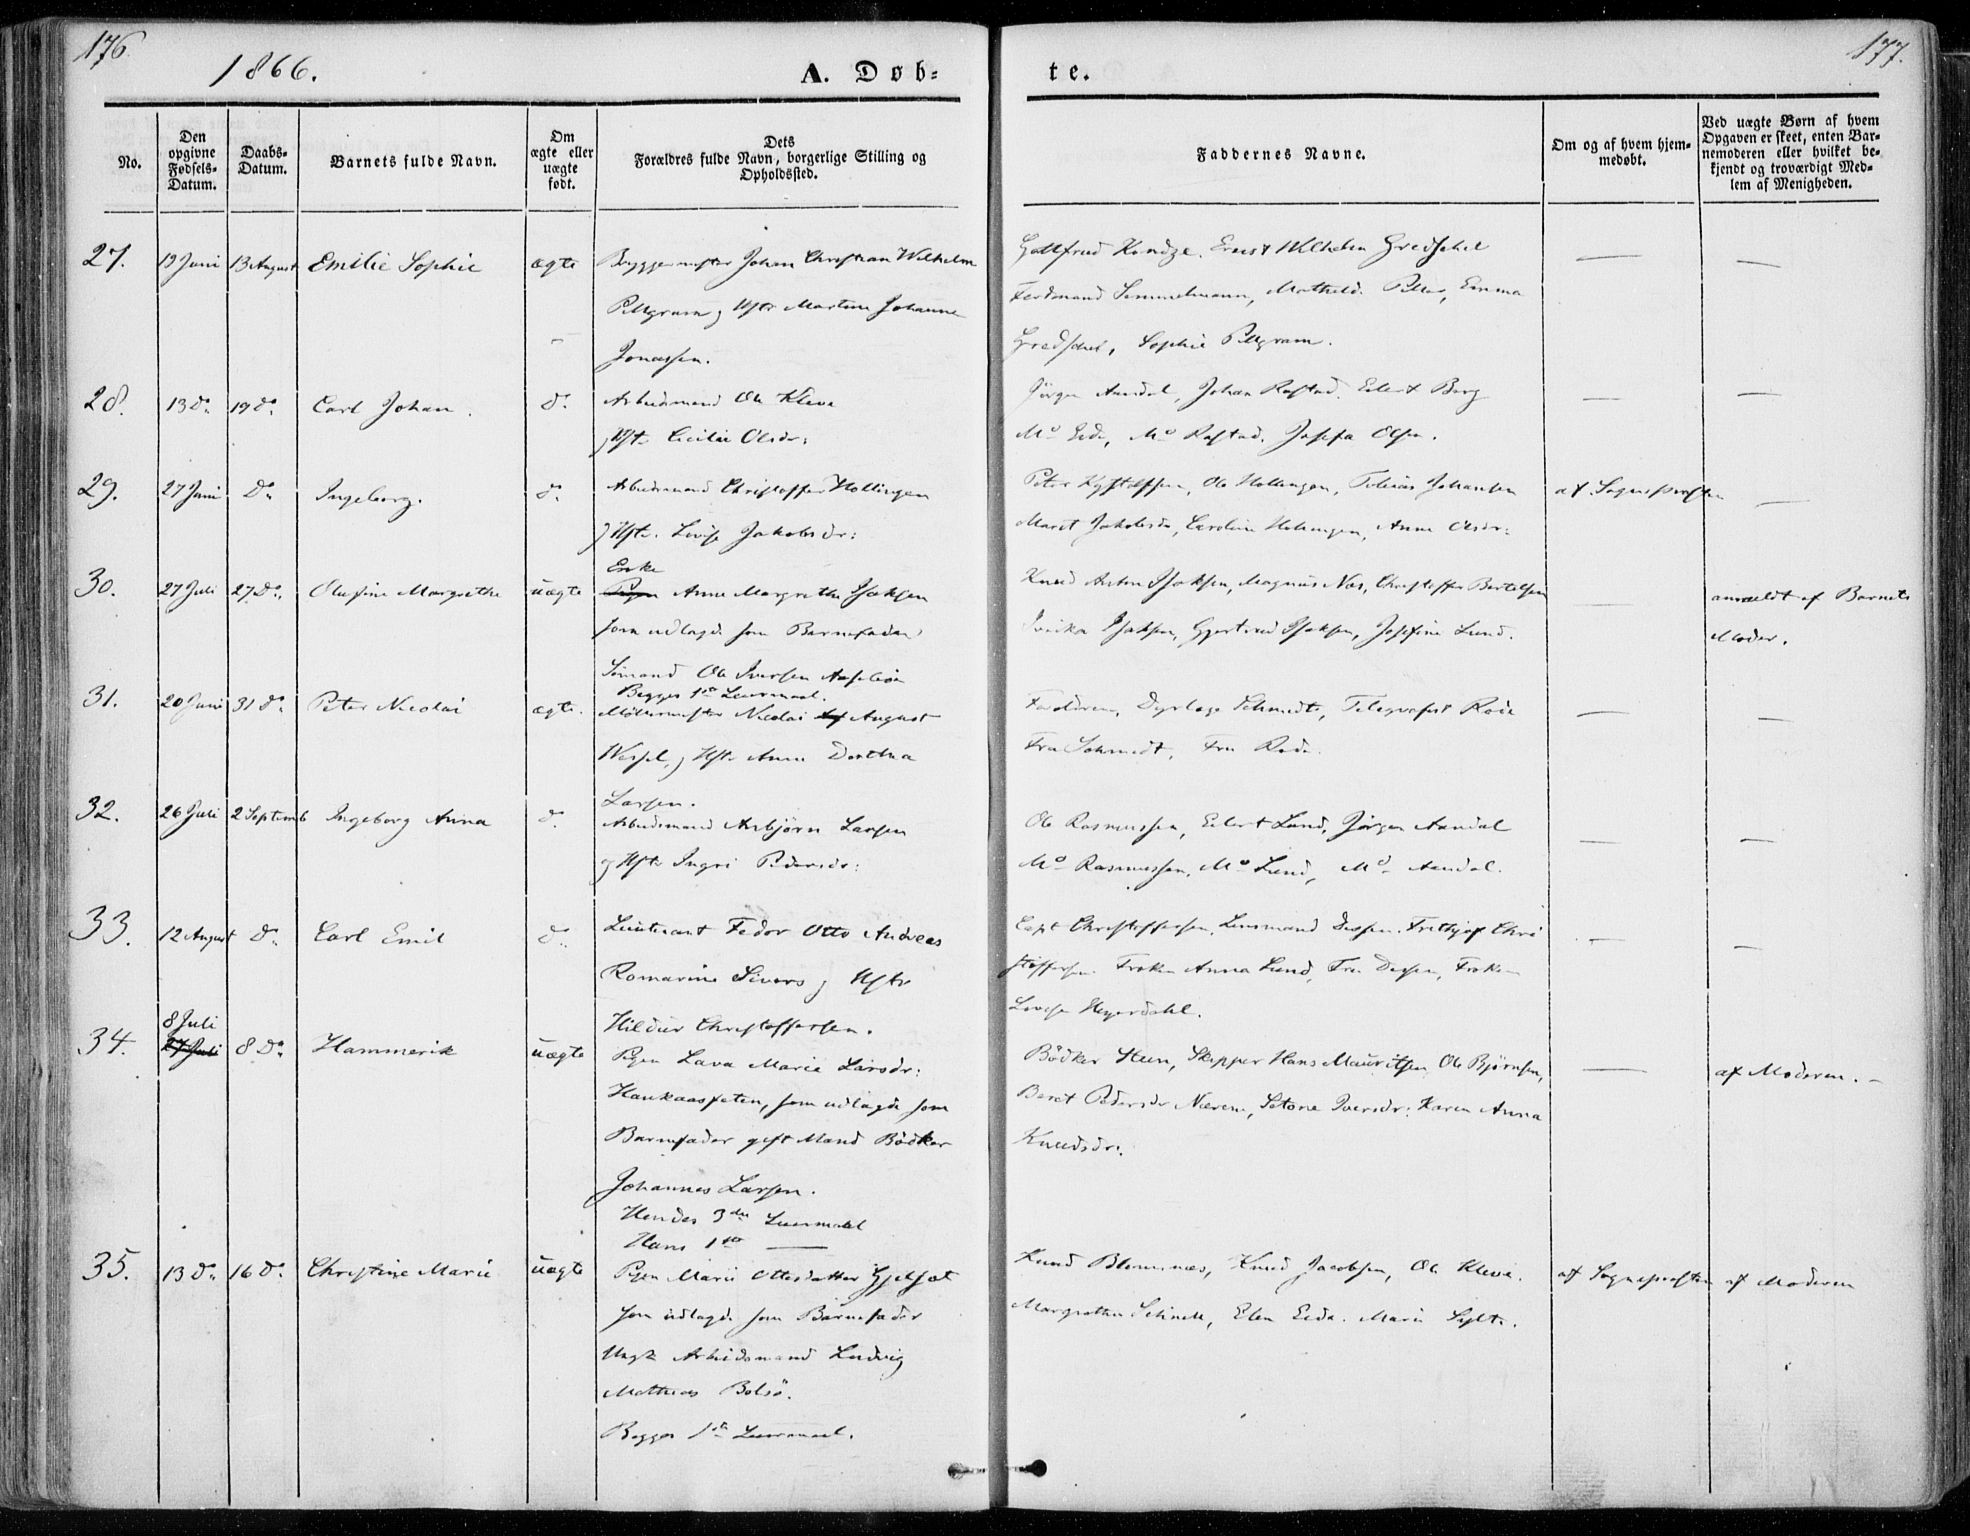 176
1866.
A. Døb-
te.
177.
No.
Den opgivne Fødsels-Datum.
Daabs-Datum.
Barnets fulde Navn.
Om ægte eller uægte født.
Dets Forældres fulde Navn, borgerlige Stilling og Opholdssted.
Faddernes Navne.
Om og af hvem hjemmedøbt.
Ved uægte Børn af hvem Opgaven er skeet, enten Barnemoderen eller hvilket bekjendt og troværdigt Medlem af Menigheden.
27. 13 Juni 13 August Emilie Sophie ægte Bryggermester Johan Christian Wilhelm
Pellgram og Hstr Martine Johanne
Jonassen.
Gottfried Ernst Wilhelm
Ferdinand Semmelmann, Mathilde Emma
Sophie Pellgram.
— —
28. 13 do 19 do Carl Johan. do Arbeidsmand Ole Kleve
og Hstr Cecilie Olsdr:
Jörgen Aandal, Johan Rafstad, Eilert Berg
Mo Eide, Mo Rafstad, Josefa Olsen.
— —
29. 27 Juni Do Ingeborg. do Arbeidsmand Christoffer Hollingen
og Hstr. Lovise Jakobsdr:
Peter Ole Hollingen, Tobias Johansen
Marit Jakobsdr, Caroline Hollingen, Anne Olsdr:
af Sognepræsten —
30. 27 Juli 27 Do Olufine Margrethe uægte Enke
Pigen Anne Margrethe Isaksen
som udlagde som Barnefader
Sömand Ole Iversen
Begges 1ste Leiermaal.
Knud Anton Isaksen, Magnus Næs, Christoffer Bertelsen
Isaksen, Gjertrud Isaksen, Josefine Lund.
— anmeldt af Barnets
Moder.
31. 20 Juni 31 do Peter Nicolai ægte. Möllermester Nicolai August
Wessel, og Hstr Anne Dorthea
Larsen.
Forældrene, Dyrlæge Schmidt, Telegrafist Rode
Fru Schmidt, Fru Rode.
— —
32. 26 Juli 2 Septemb Ingeborg Anna do Arbeidsmand Asbjörn Larsen
og Hstr Ingri Pedersdr:
Ole Rasmussen, Eilert Lund, Jörgen Aandal
Mo Rasmussen, Mo Lund, Mo Aandal.
— —
33. 12 August do Carl Emil do Lieutenant Fedor Otto Andreas
Romarine Sivers og Hstr
Hildur Christoffersen.
Capt Christoffersen, Lensmand Dessen, Frithjof Chri
stoffersen, Fröken Anna Lund, Fru Dessen, Fröken
Lovise Heyerdahl.
— —
34. 8 Juli
27 Juli 8 Do Hammerik uægte Pigen Lava Marie Larsdr:
Haukaasfeten, som udlagde som
Barnefader gift Mand Bödker
Johannes Larsen.
Hendes 3die Leiermaal
Hans 1ste —
Bödker Steen, Skipper Hans Mauritsen Ole Björnsen,
Beret Pedersdr Setane Iversdr: Karen Anna
Knudsdr:
— af Moderen. —
35. 13 do 16 do Christine Marie uægte Pigen Marie Ottesdatter
som udlagde som Barnefader
Ungk Arbeidsmand Ludvig
Mathias Bolsö.
Begges 1ste Leiermaal.
Knud Knud Jacobsen, Ole Kleve.
Margrethe Schnell, Elen Eide. Marie Sylte.
af Sognepræsten af Moderen